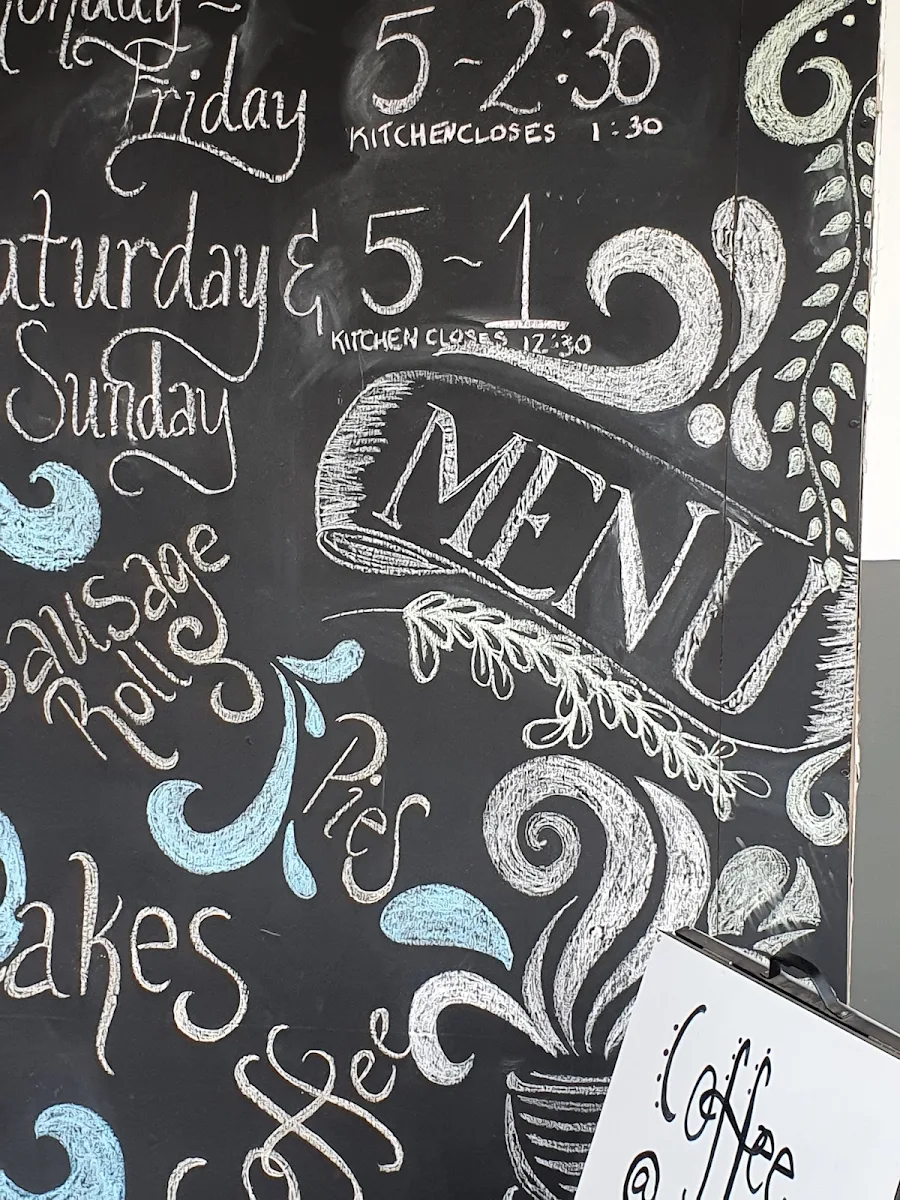 Monday ~
Friday
5 ~ 2:30
KITCHEN CLOSES 1:30
aturday &
Sunday
5 ~ 1
KITCHEN CLOSES 12:30
MENU
Sausage
Rolls
Pies
akes
Coffee
Coffee
@